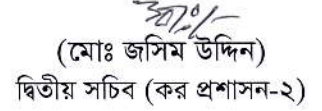 (মোঃ জসিম উদ্দিন)
দ্বিতীয় সচিব (কর প্রশাসন-২)